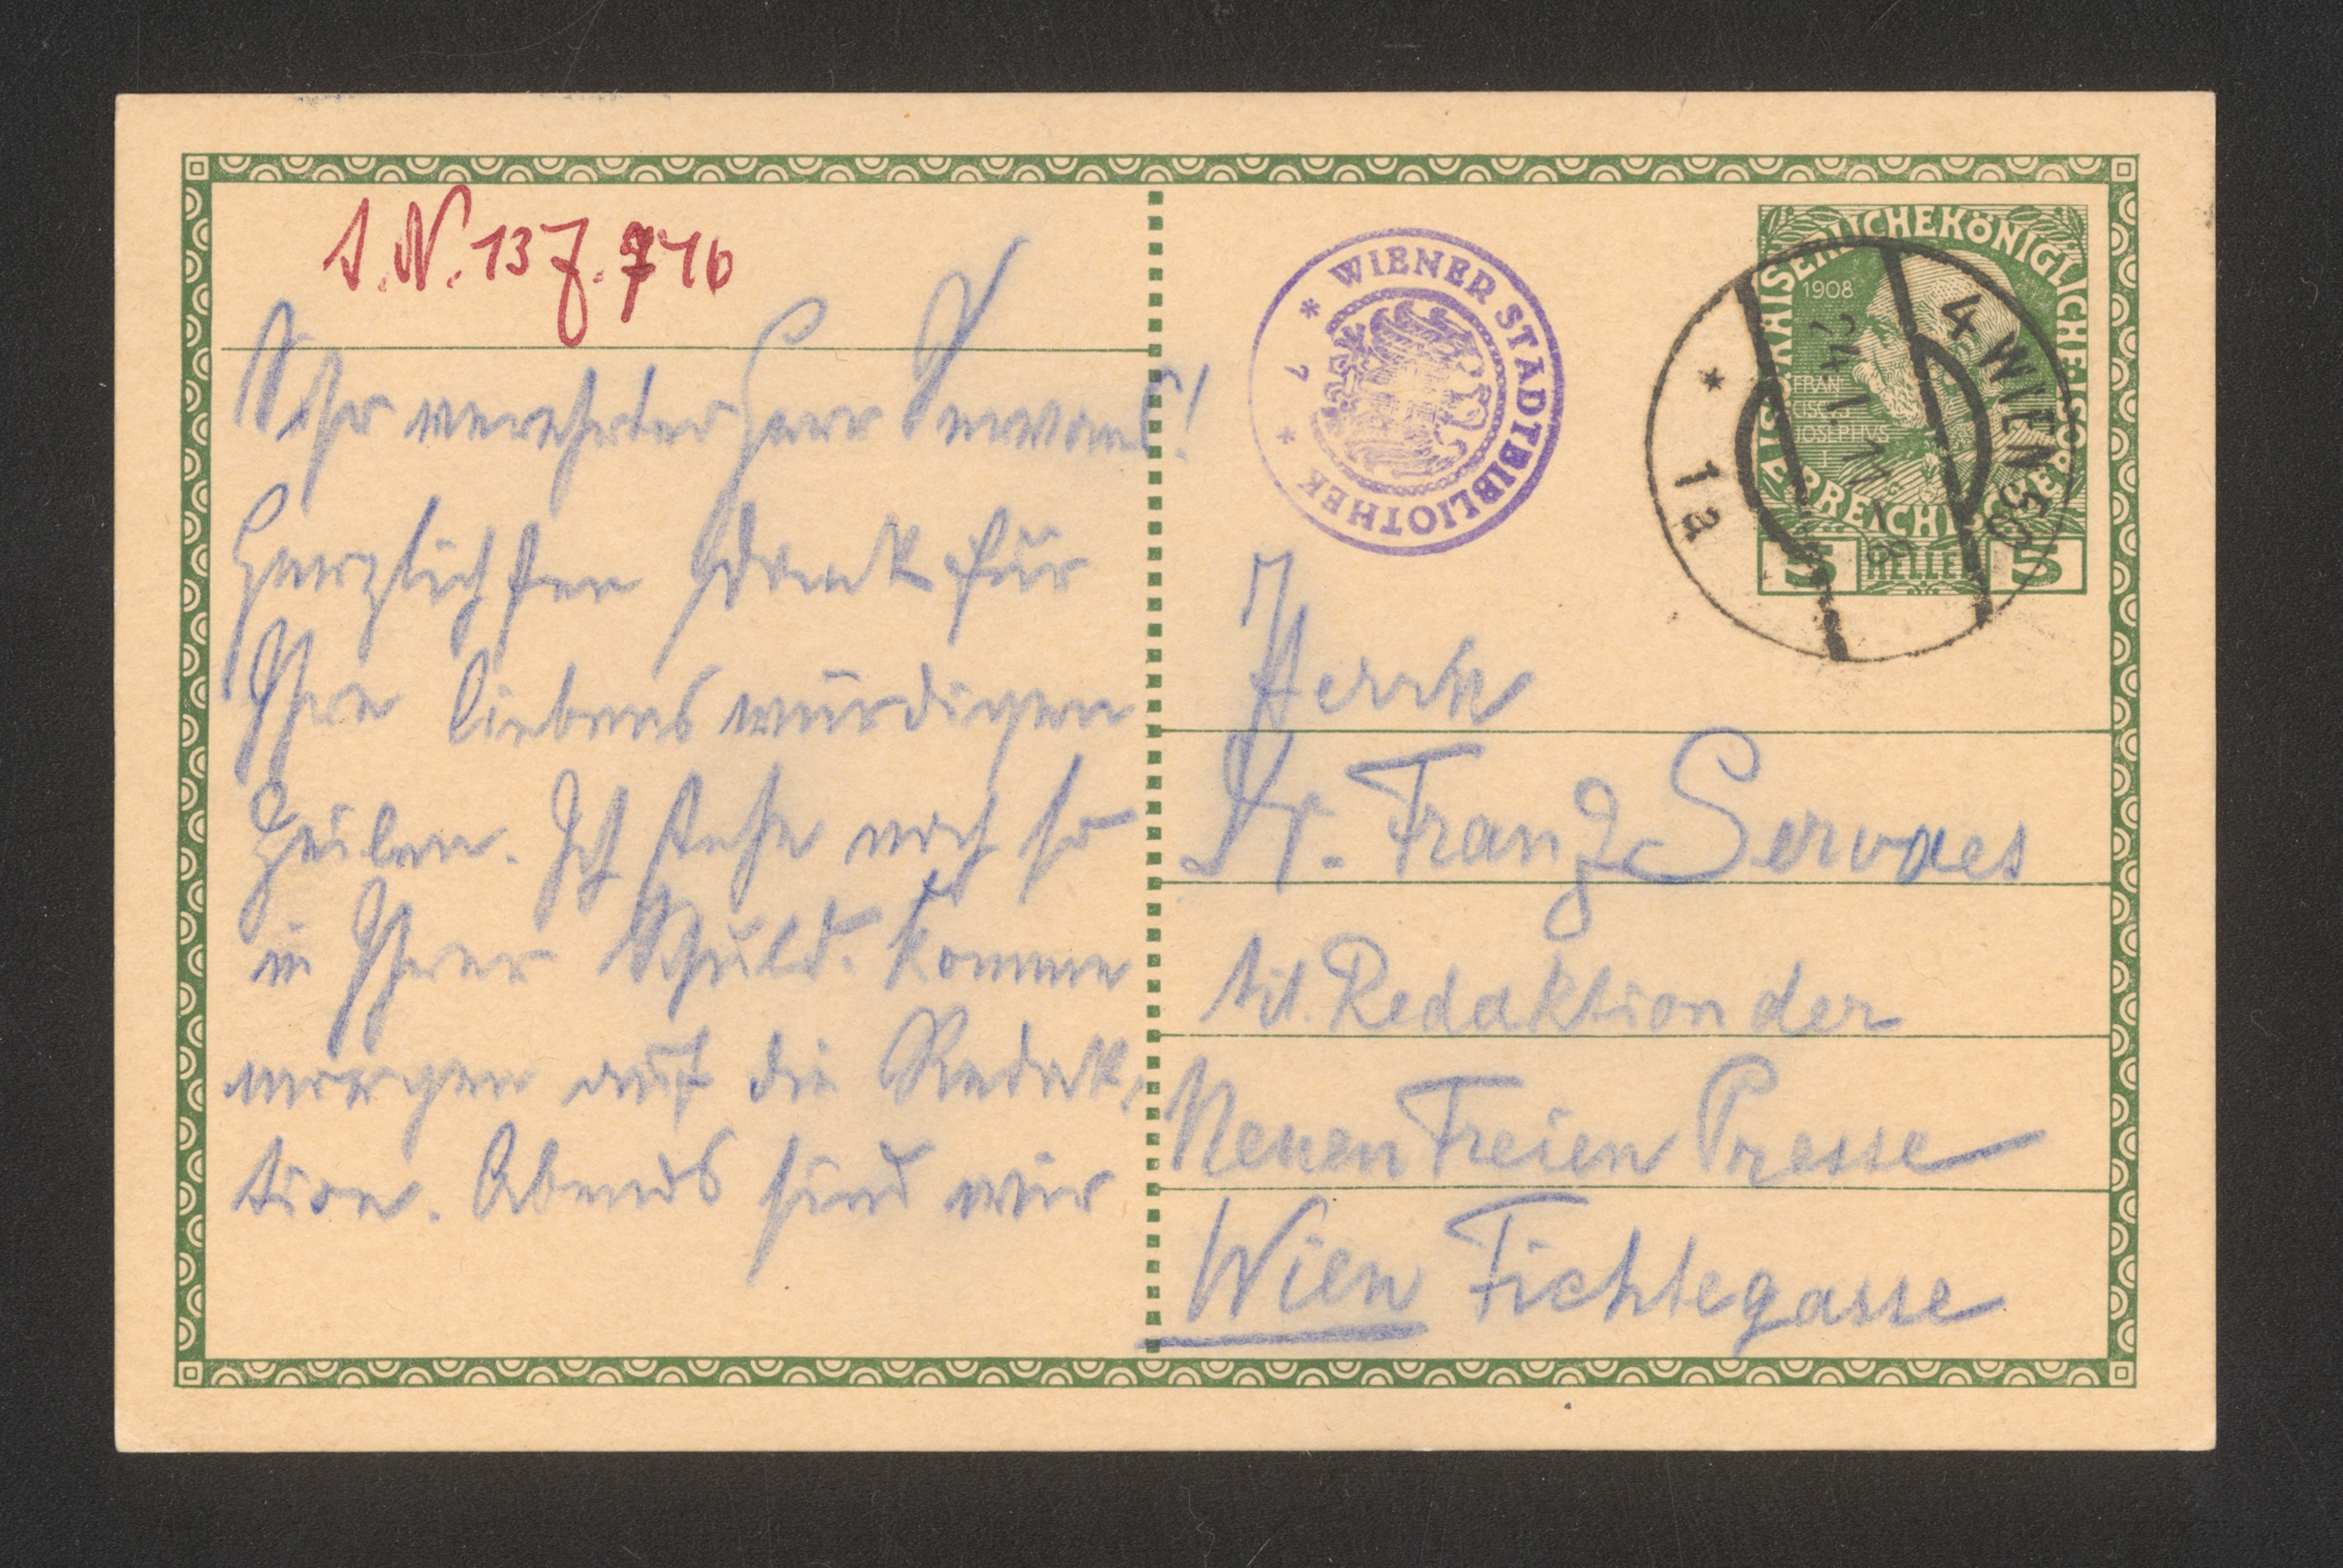 I.N. 137.716
Sehr verehrter Herr Servaes!
Herzlichsten Dank für
Ihre liebenswürdigen
Zeilen. Ich stehe noch so
in Ihrer Schuld. Komme
morgen auf die Redak-
tion. Abends sind wir
* WIENER STADTBIBLIOTHEK *
KAISERLICHE KÖNIGLICHE ÖSTERREICHISCHE
1908
FRAN
CISCVS
IOSEPHVS
I
5 HELLER 5
4 WIEN 50
24. I. 11 - 8
* 1a
Herrn
Dr. Franz Servaes
tit. Redaktion der
Neuen Freien Presse
Wien Fichtegasse